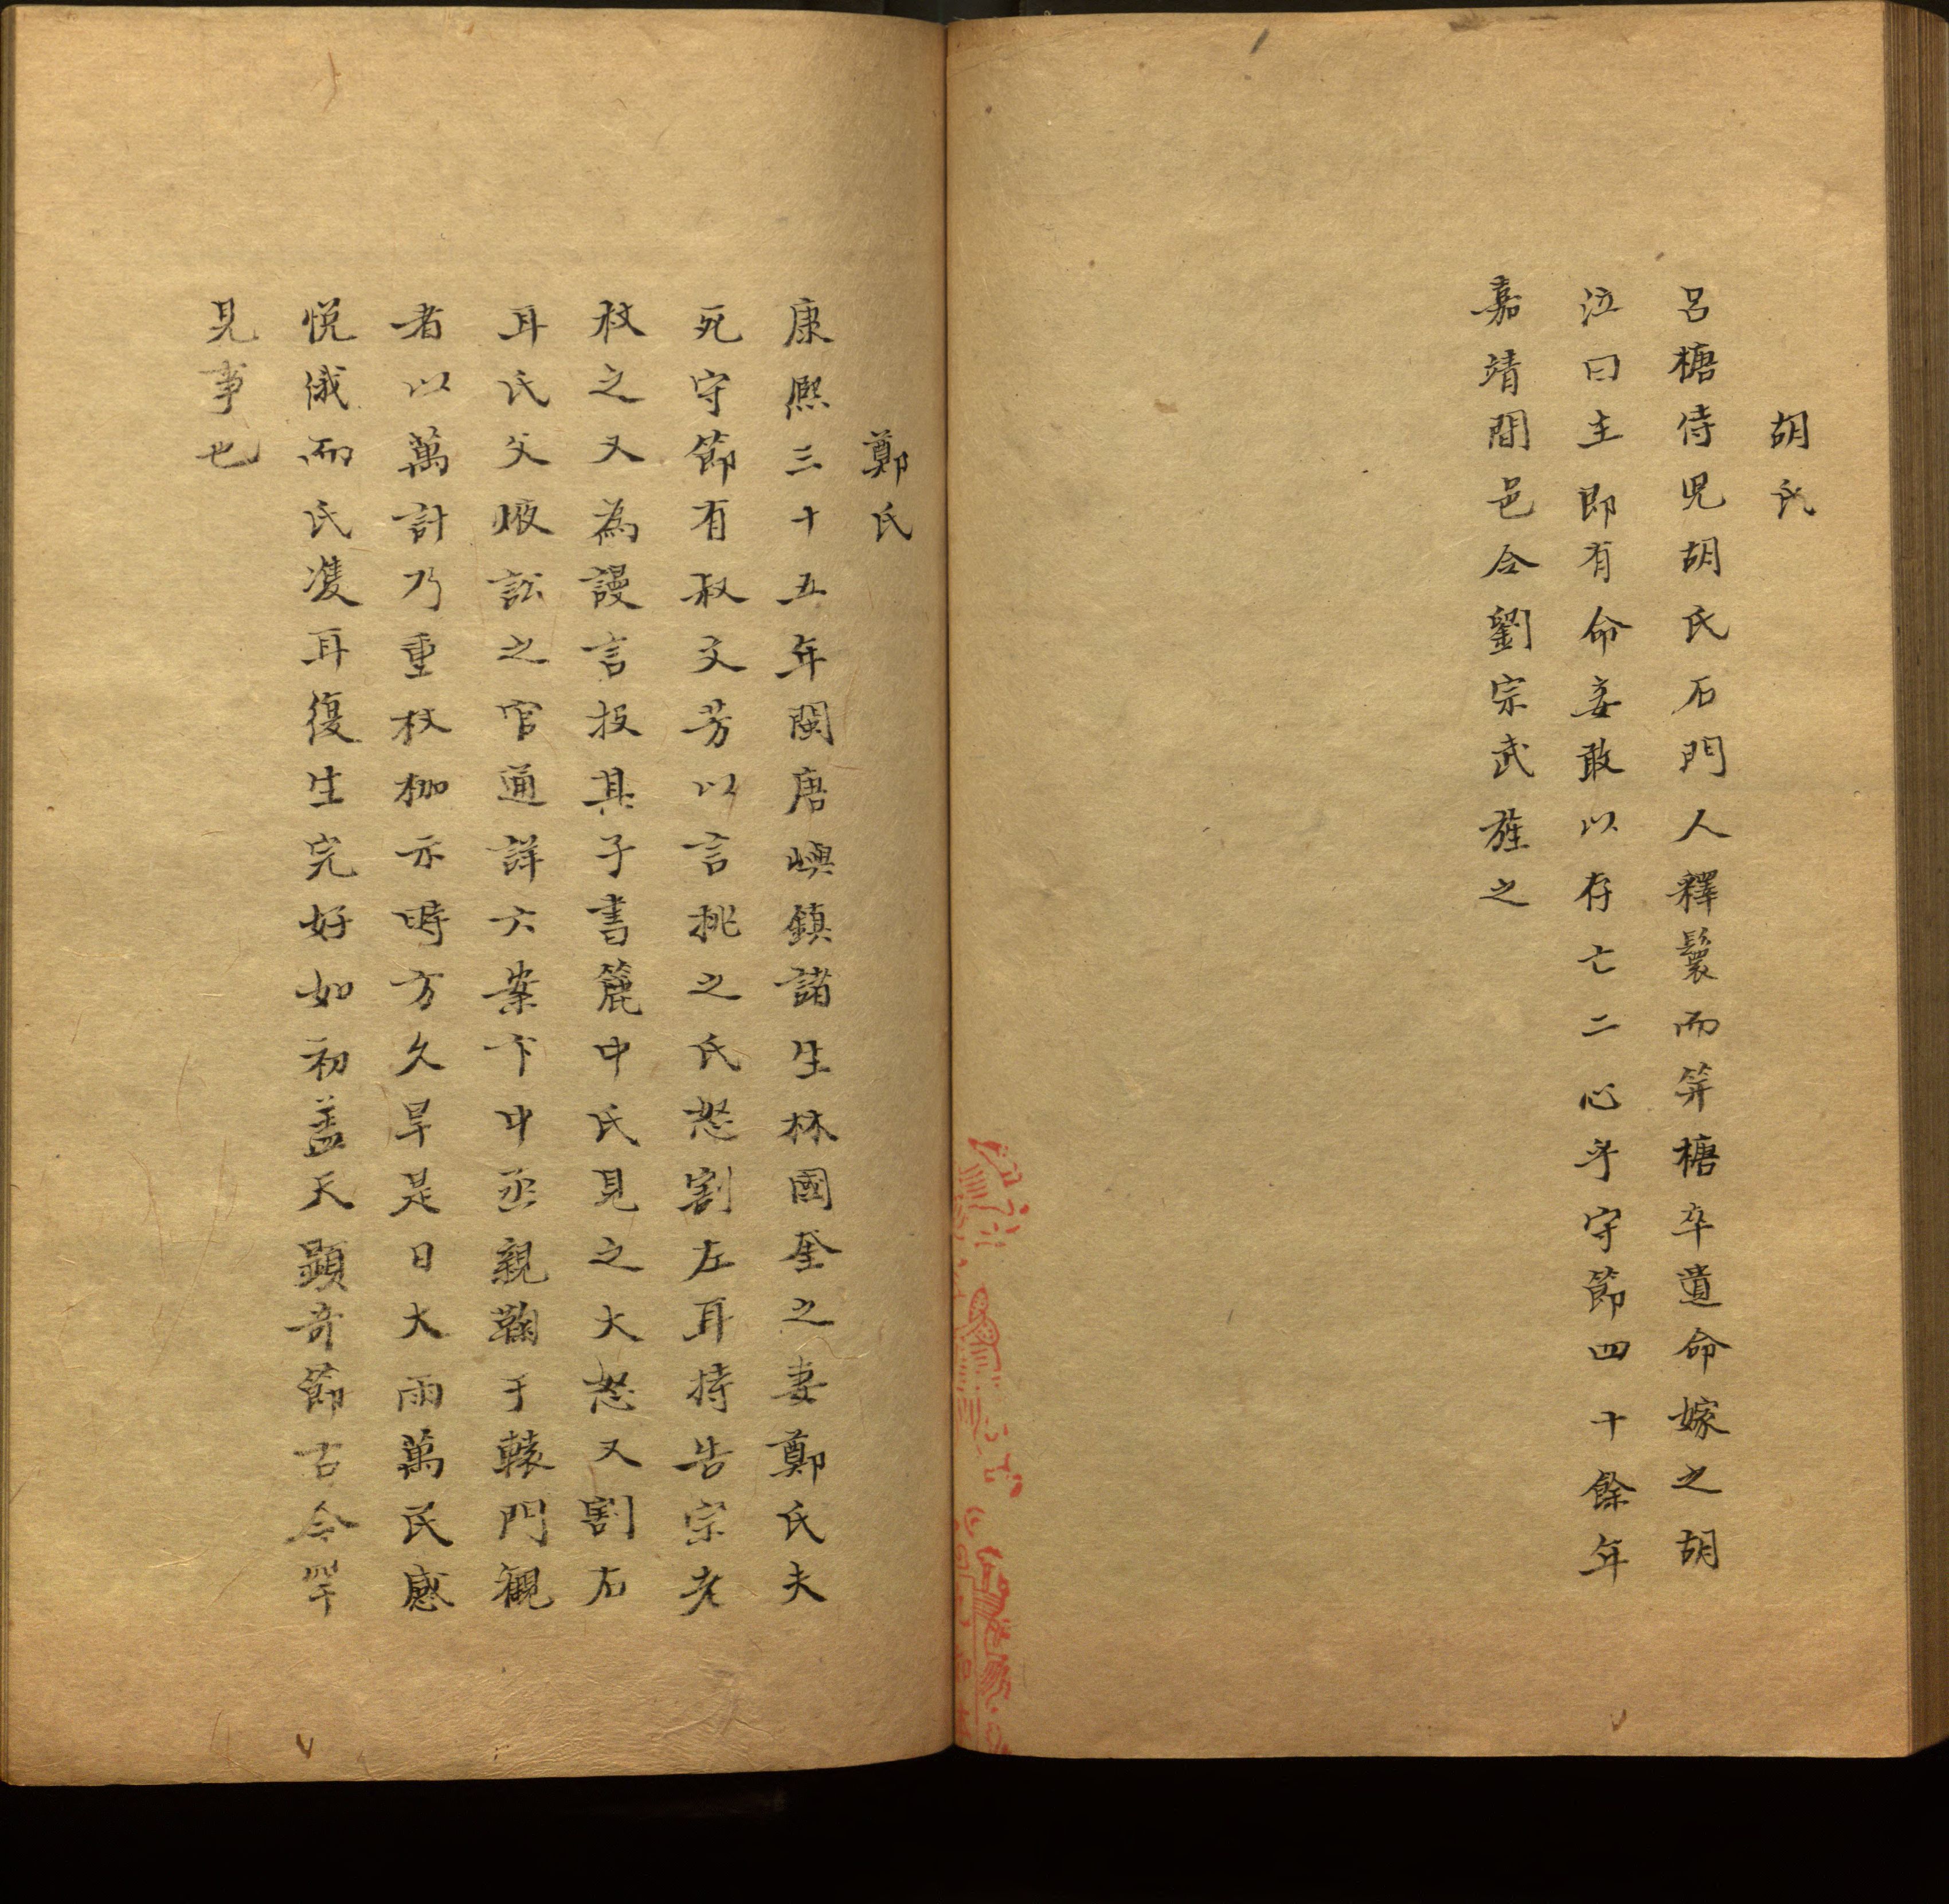 胡氏
呂樀侍児胡氏石門人釋鬟而笄樀卒遺命嫁之胡
泣曰主即有命妾敢以存亡二心乎守節四十餘年
嘉靖間邑令劉宗武旌之
鄭氏
康熈三十五年閩唐嶼鎮諸生林國奎之妻鄭氏夫
死守節有叔文芳以言挑之氏怒割左耳持告宗老
杖之又為謾言投其子書簏中氏見之大怒又割右
耳氏父愀訟之官通詳六案卞中丞親鞠于轅門観
者以萬計乃重杖枷示時方久旱是日大雨萬民感
悅俄而氏𩀱耳復生完好如初盖天顯奇節古今罕
見事也